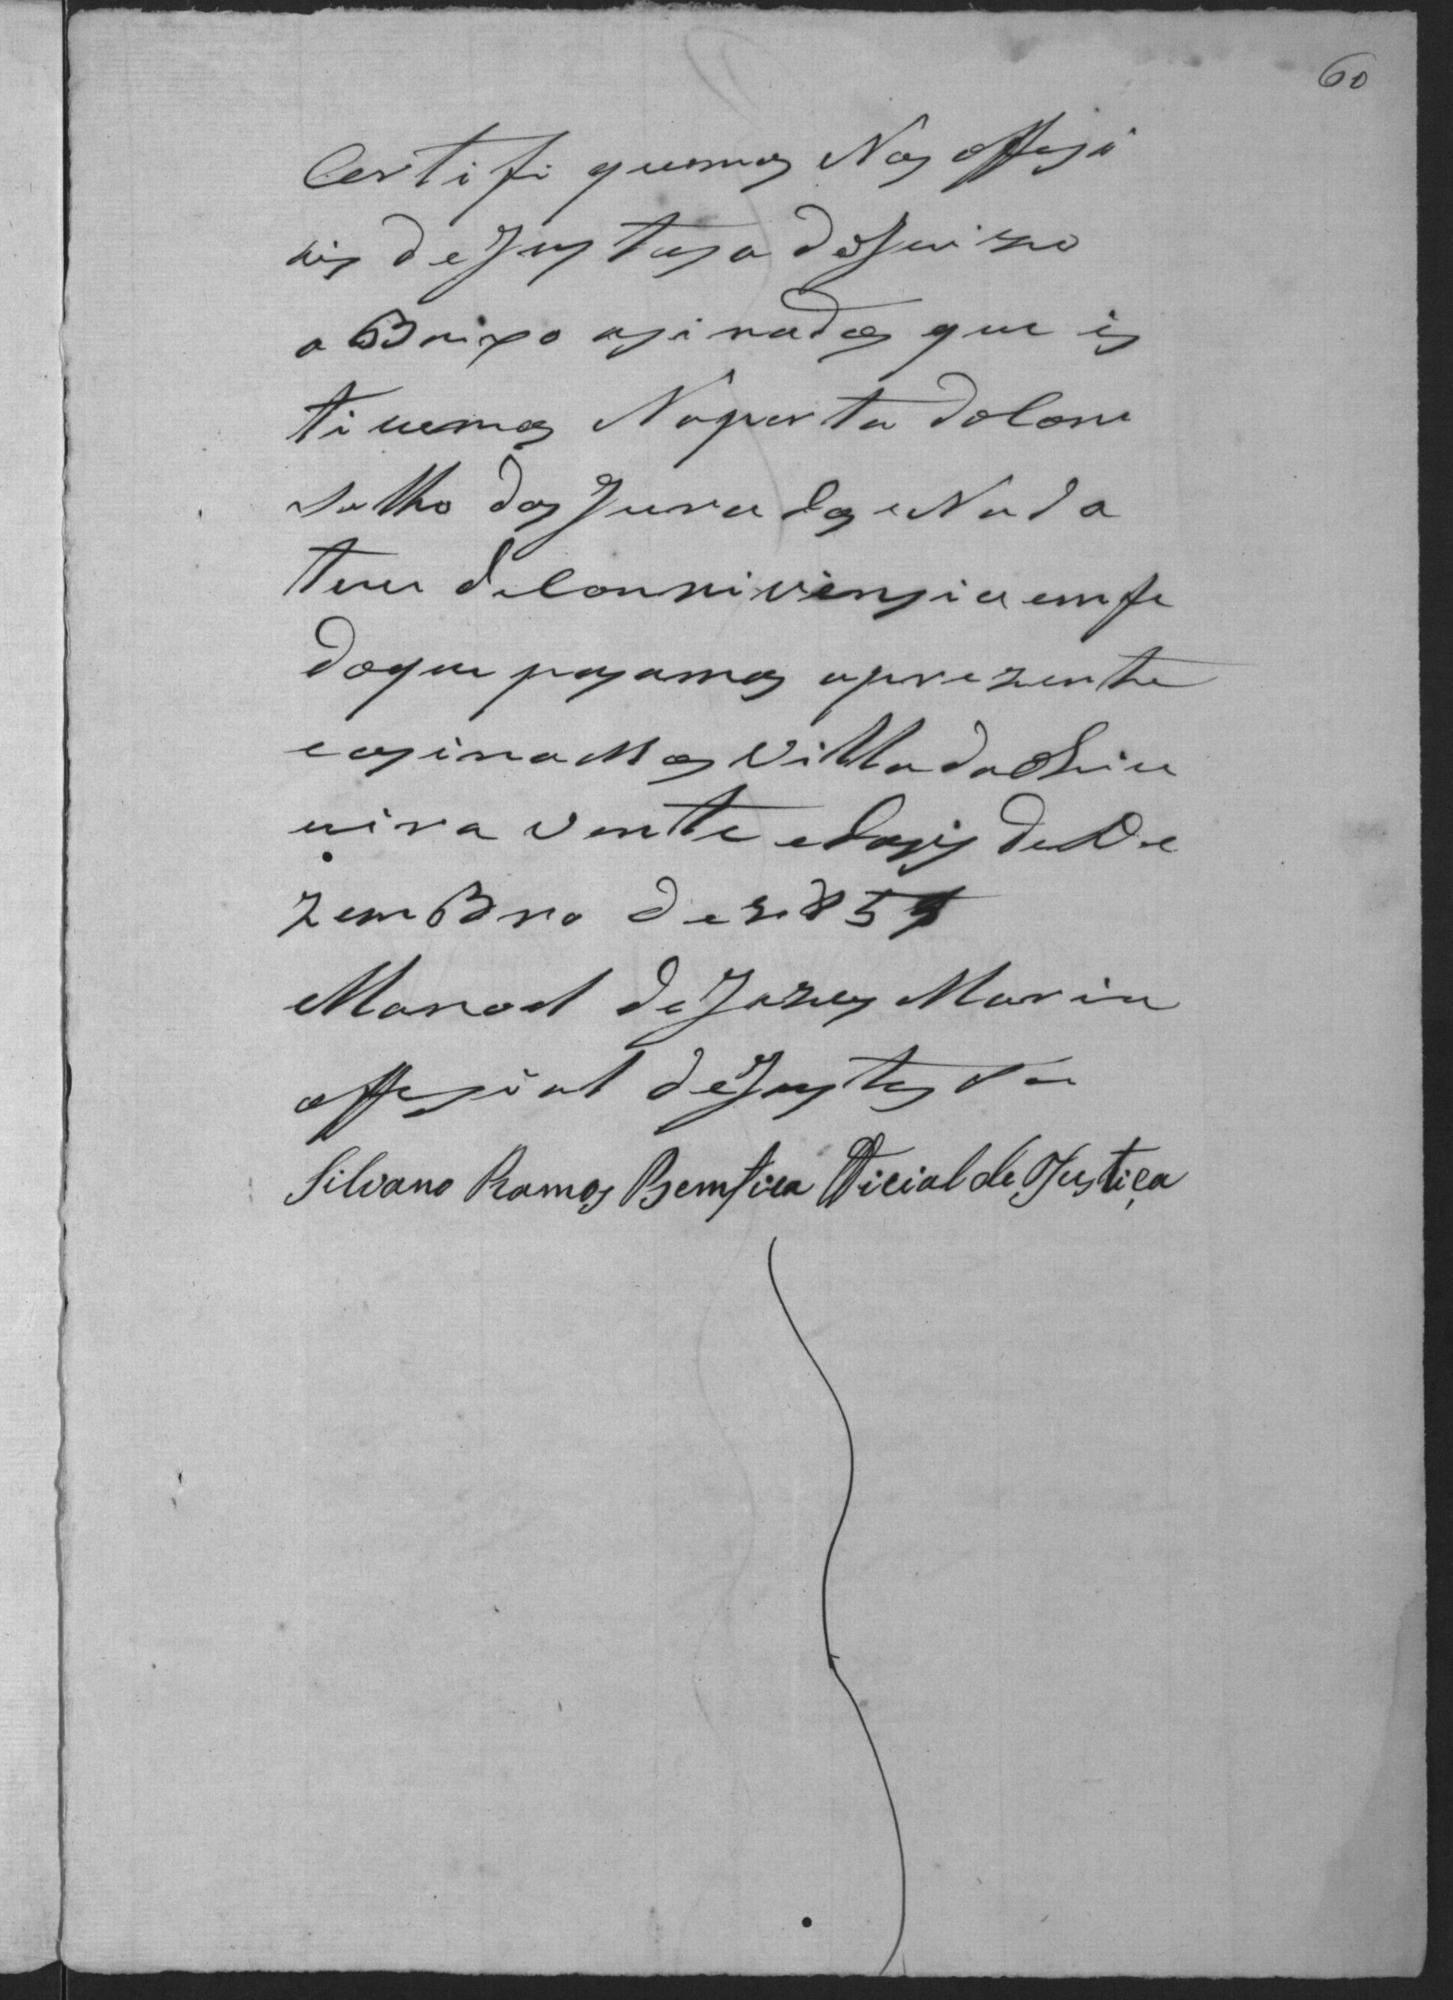 60
Certifi quemos Nos offesi
ais de Justisa do Juizo
a Baixo asinados que is
tivemos Na porta do Con
selho dos Jurados e Nada
teve de Connivensia em fe
do que pasamos aprezente
e asinados Villa da
vinte e de De
zemBro de 185
Manoel de Jezus Maria
offesial de Justisa
Silvano Ramos Bemfica Oficial de Justiça